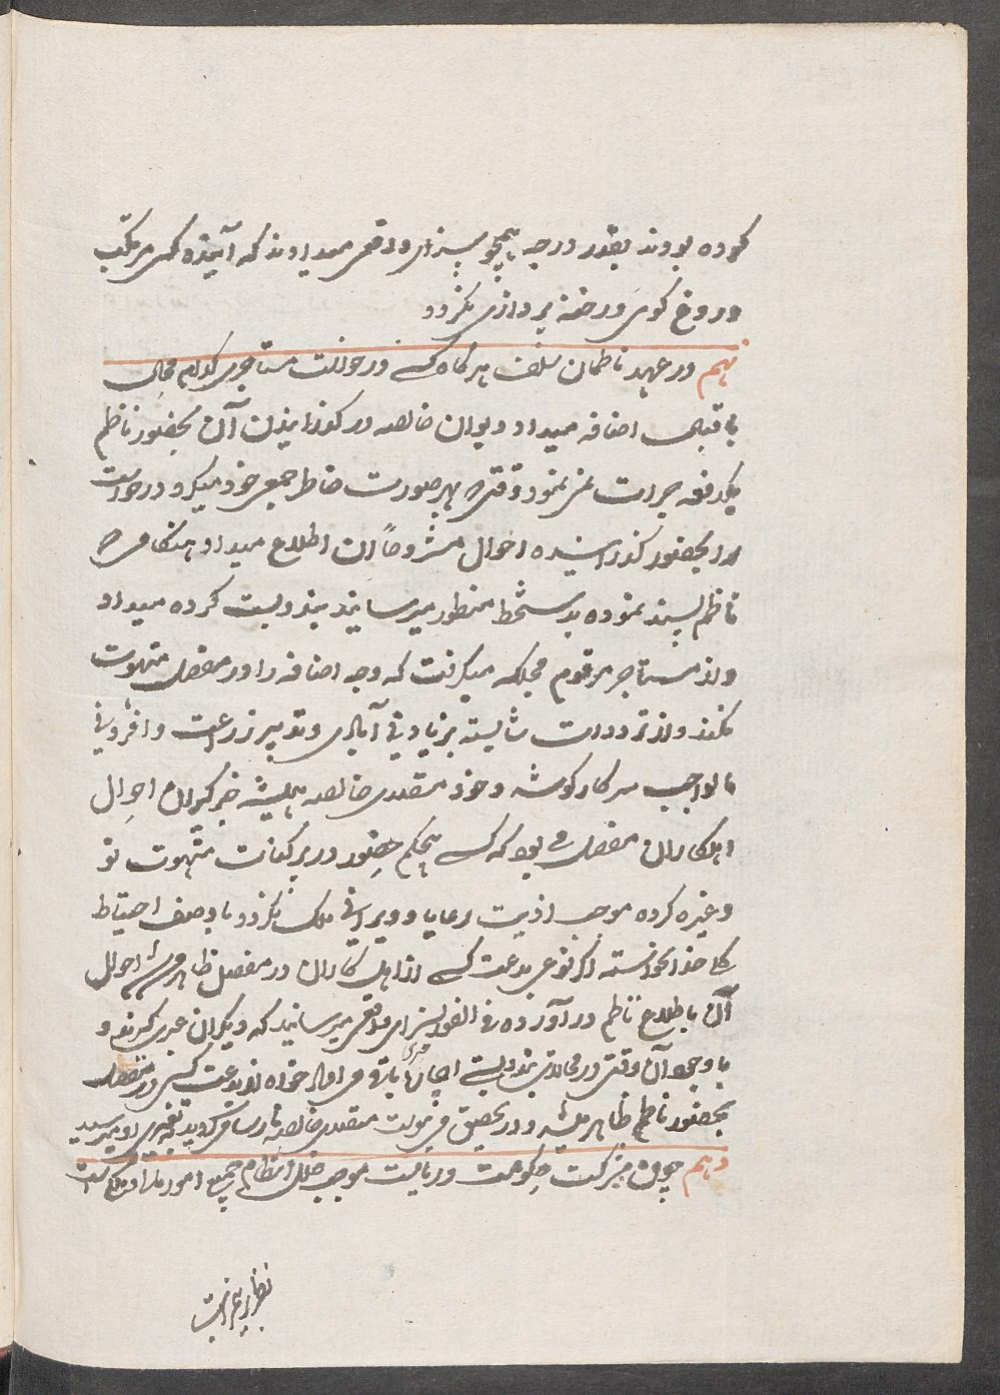 کرده بودند بقدر درجه همچو بسزای واقعی میدادند که آینده کسی مرتکب
دروغ کوی و رخنه پردازی نکردد
نهم در عهد ناظمان سلف هرکاه کسے درخواست مستاجری کدام محال
باقبال اضافه میداد دیوان خالصه در کذرانیدن آن بحضور ناظم
یکدفعه جرات نمی نمود وقتیکه بهر صورت خاطر جمعی خود میکرد درخواست
او را بحضور کذرانیده احوال مشروحاً آن اطلاع میداد هنکامیکه
ناظم پسند نموده بدستخط منظور میرسانید بندوبست کرده میداد
و از مستاجر مرقوم مچلکه میکرفت که وجه اضافه را در مفصل متهوت
نکند و از ترددات شایسته بزیادتی آبادی و توفیر زراعت و افزونی
مالواجب سرکار کوشد و خود متصدی خالصه همیشه خبرکیران احوال
اهلکاران مفصل می بود که کسے بیحکم حضور در پرکنات متهوت نو
وغیره کرده موجب اذیت رعایا و ویرانی ملک نکردد باوصف احتیاط
کاه خدانخواسته اکر نوعی بدعت کسے از اهل کاران در مفصل ظاهر میشد احوال
آن باطلاع ناظم در آورده فی الفور بسزای واقعی میرسانید که دیکران عبرت کیرند و
باوجود آن وقتی در محالات بندوبستے اجاره یا تقرری اماله خواه از بدعت کسی در مفصل
بحضور ناظم ظاهر میشد و در تحقیق فی غفلت متصدی خالصه نارسائی کردید تغیری او میرسید
دهم چون شرکت حکومت و ریاست موجب خلل انتظام جمیع امور ملک است